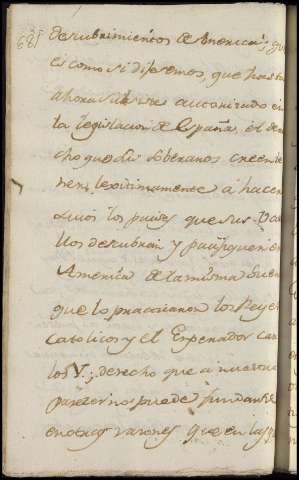 descubrimientos de America; q.e
es como si dijesemos, que hasta
ahora está autorizado en
la legislacion de España, el dere
cho que sus soberanos creen te
ner, lexitimamente a hacer
suios los paises que sus Vasa
llos descubran y pacifiquen en
America de la misma suerte
que lo practicaron los Reyes
Catolicos y el Emperador Car
los V.; derecho que a nuestro
parezer no puede fundarse
en otras razones que en las